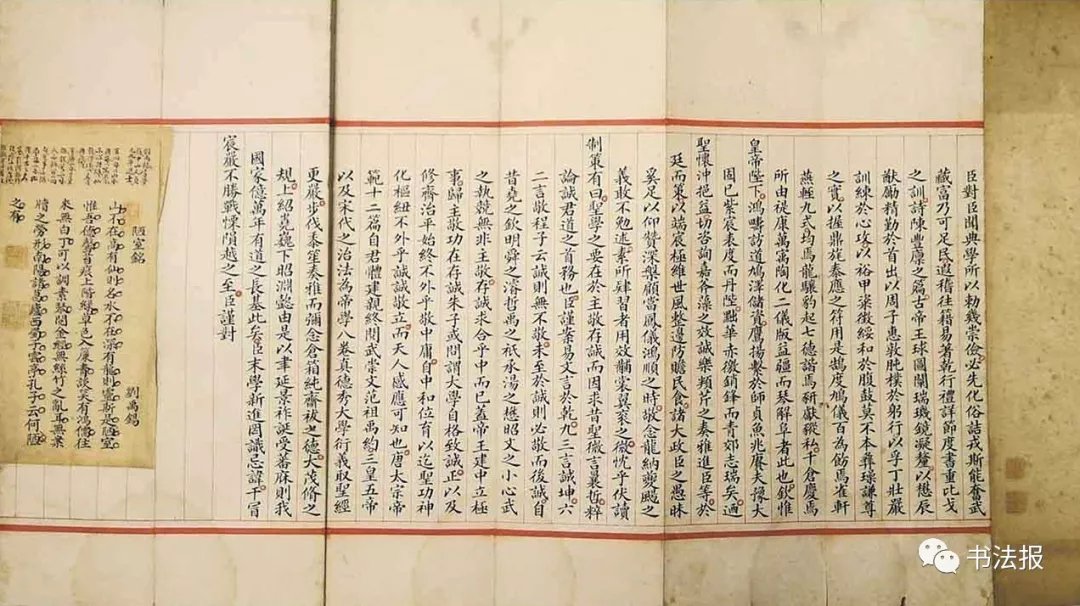 臣對臣聞典學所以勅幾崇儉必先化俗詰戎斯能奮武
藏富乃可足民遐稽往籍易著乾行禮詳節度書重比戈
之訓詩陳豐康之篇古帝王球圖闡瑞璣鏡凝釐以懋辰
猷勵精勤於首出以周子惠敦肫樸於躬行以孚丁壯嚴
訓練於心攻以裕甲粱徵綏和於腹鼓莫不本彝璪謙尊
之實以握鼎旋泰應之符用是鴶度鳩儀百為飭焉雀軒
燕輊九式均焉龍驤豹起七德諧焉豜獻豵私千倉慶焉
所由禔康萬寓陶化二儀版益疆而琴解阜者此也欽惟
皇帝陛下鴻疇訪道鳩澤儲資鷹揚繫於師貞魚兆賡夫豫大
固已紫宸表度而丹陛點華赤徼銷鋒而青郊志瑞矣迺
聖懷沖挹益切咨詢嘉藻之效誠樂頖芹之奏雅進臣等於
廷而策以端宸極維世風整邊防贍民食諸大政臣之愚昧
奚足以仰贊深槃顧當鳳儀鴻順之時敬念龍納颺之
義敢不勉述素所肄習者用效黼裳翼袞之微忱乎伏讀
制策有曰聖學之要在於主敬存誠而因求昔聖微言曩哲粹
論誠君道之首務也臣謹案易文言於乾九三言誠坤六
二言敬程子云誠則無不敬未至於誠則必敬而後誠自
昔堯之欽明舜之濬哲禹之祇承湯之懋昭文之小心武
之執競無非主敬存誠求合乎中而已蓋帝王建中立極
事歸主敬功在存誠朱子或問謂大學自格致誠正以及
修齊治平始終不外乎敬中庸自中和位育以迄聖功神
化樞紐不外乎誠誠敬立而天人感應可知也唐太宗帝
範十二篇自君體建親終閱武崇文范祖禹約三皇五帝
以及宋代之治法為帝學八卷真德秀大學衍義取聖經
更嚴步伐黍笙奏雅而彌念倉箱純齋祓之德大茂脩之
規上紹堯巍下昭淵懿由是以聿延景祚誕受蕃庥則我
國家億萬年有道之長基此矣臣末學新進罔識忌諱干冒
宸嚴不勝戰慄隕越之至臣謹對
陋室銘 劉禹錫
山不在高有仙則名水不在深有龍則靈斯是陋室
惟吾德馨苔痕上階綠草色入簾青談笑有鴻儒往
來無白丁可以調素琴閱金經無絲竹之亂耳無案
牘之勞形南陽諸葛廬西蜀子雲亭孔子云何陋
之有
书法报